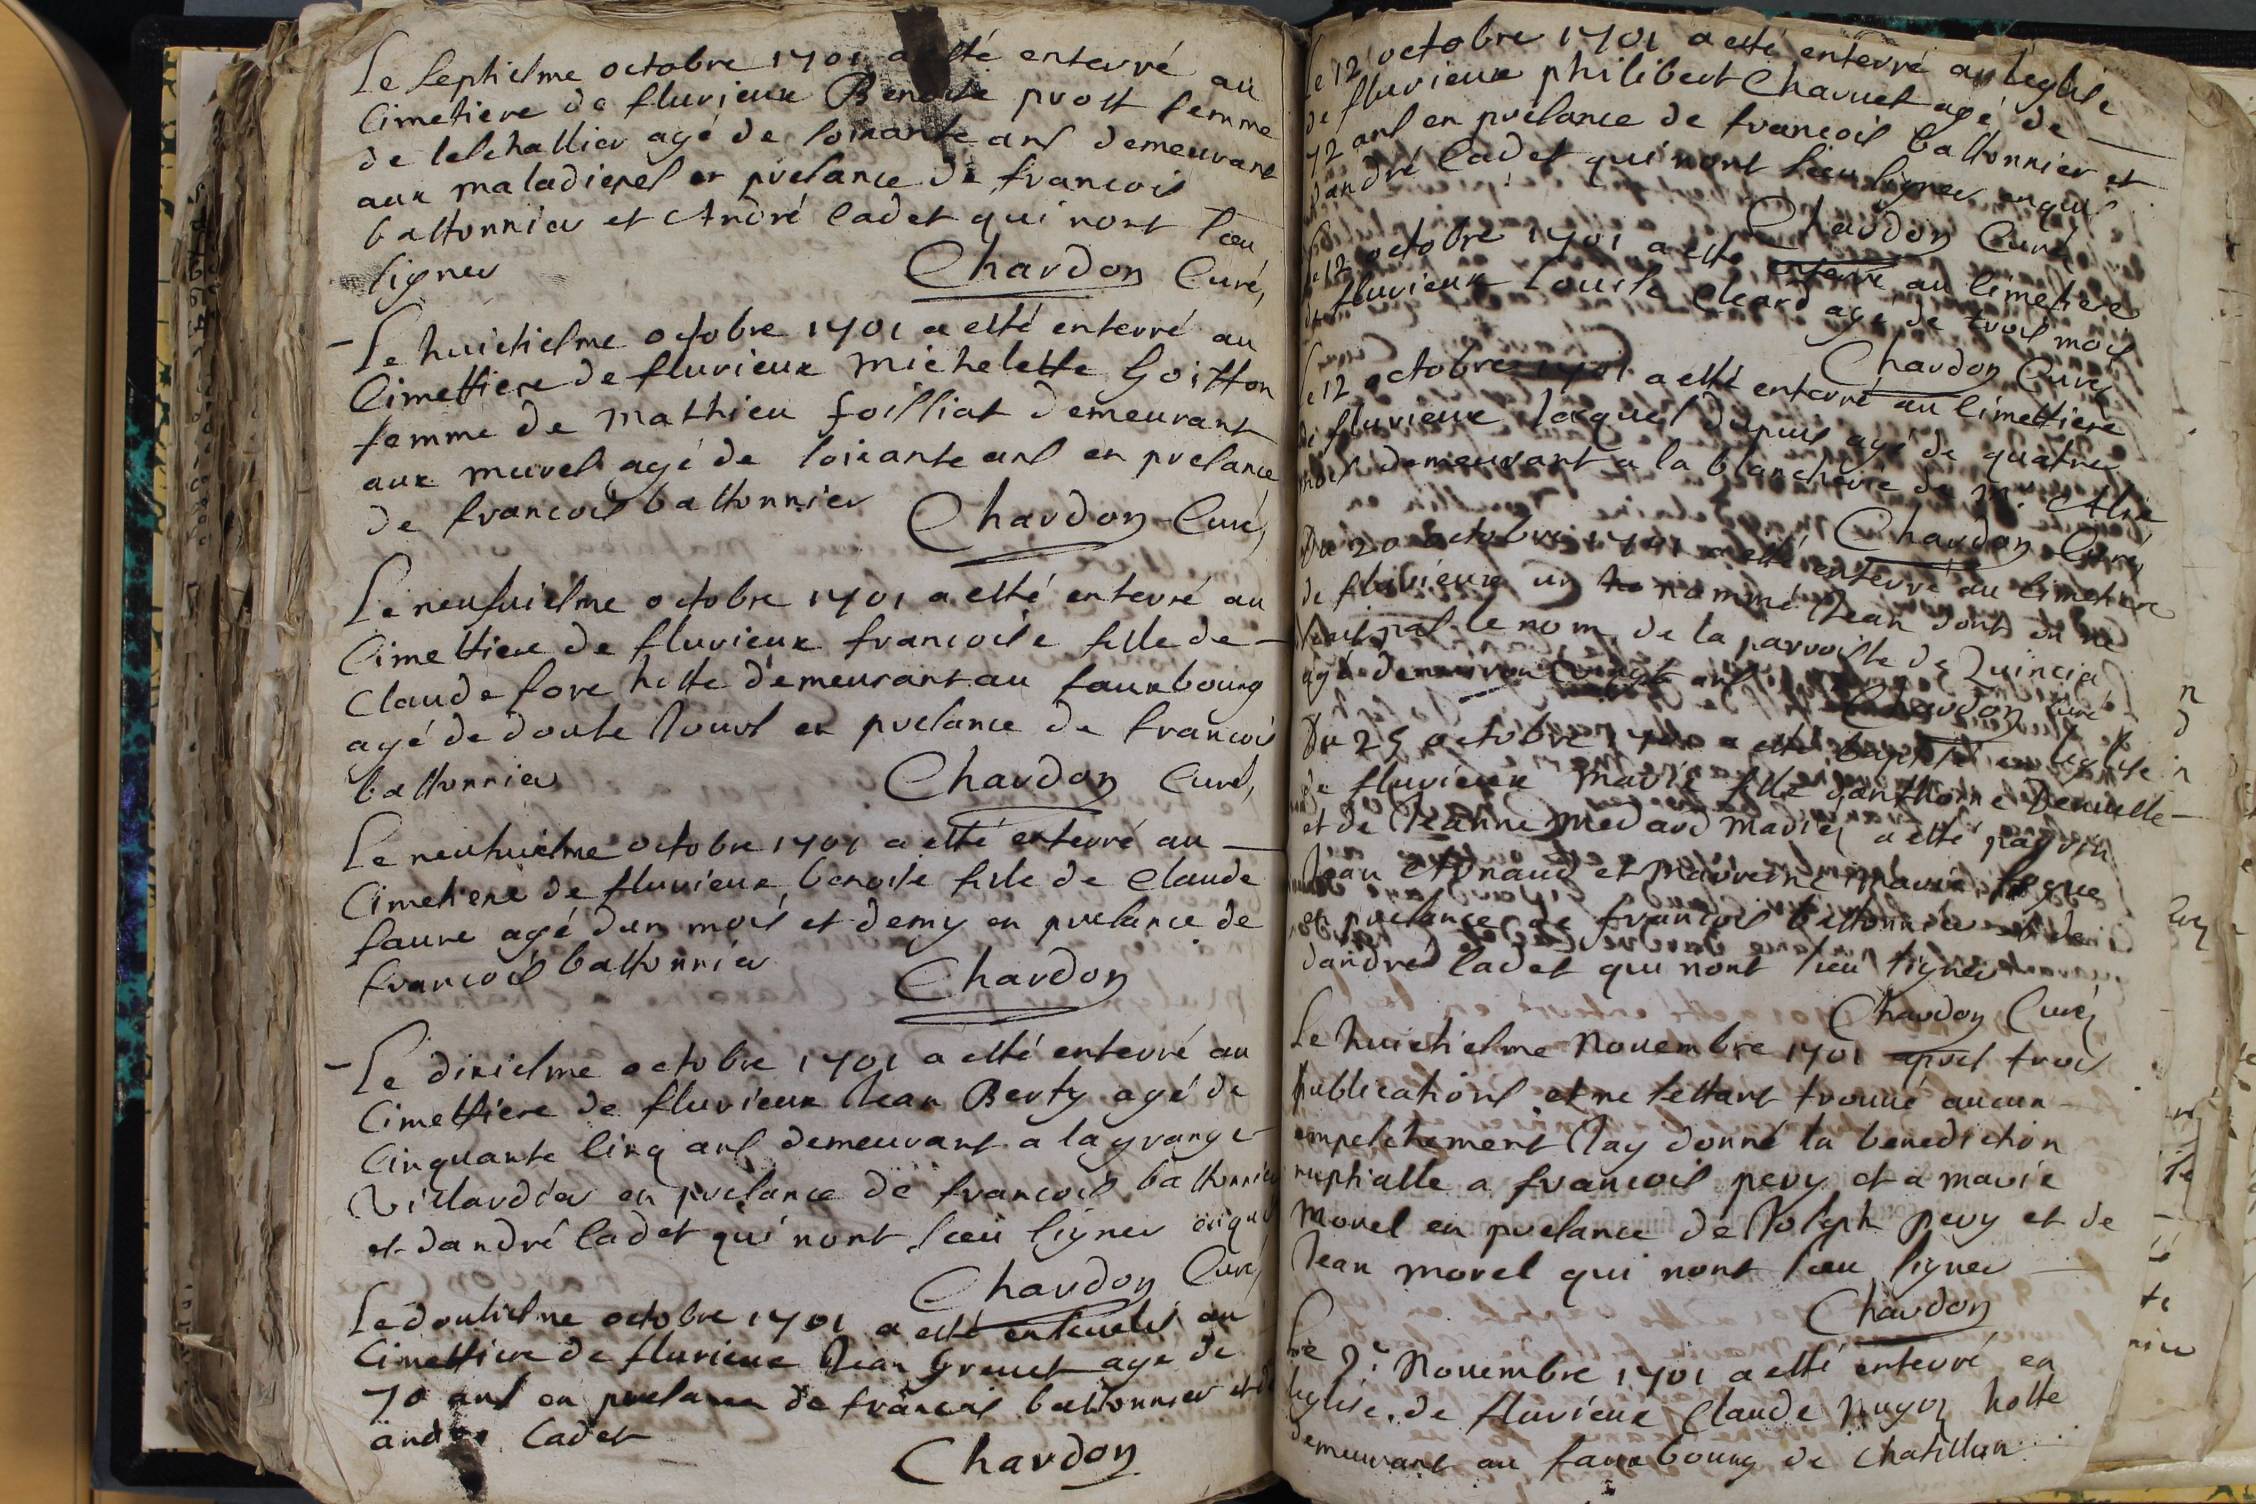 Le septiesme octobre 1701 a esté enterré au
cimetiere de fluvieux Benoite prost femme
de leschallier agé de soixante ans demeurant
aux maladieres en presance de francois
bastonnier et André cadet qui nont sceu
signer Chardon Curé,
Le huictiesme octobre 1701 a esté enterré au
cimettiere de fluvieux michelette Goitton
femme de mathieu foilliat demeurant
aux mures agé de soixante ans en presance
de francois bastonnier Chardon Curé,
Le neufuiesme octobre 1701 a esté enterré au
cimettiere de fluvieux francoise fille de
Claude fore hoste demeurant au fauxbourg
agé de douse Jours en presance de francois
bastonnier Chardon Curé,
Le neufuiesme octobre 1701 a esté enterré au
cimetiere de fluvieux benoite fille de Claude
faure agé dun mois et demy en presance de
francois bastonnier Chardon
Le dixiesme octobre 1701 a esté enterré au
cimettiere de fluvieux Jean Berty agé de
cinquante cinq ans demeurant a la grange
Villardier en presance de francois bastonnier
et dandré cadet qui nont sceu signer enquis
Chardon Curé,
Le dousiesme octobre 1701 a esté enseueli au
cimettiere de fluvieux Jean Greuet age de
70 ans en presance de francois bastonnier et de
andre Cadet
Chardon
Le 12 octobre 1701 a esté enterré en leglise
de fluvieux philibert Charuet agé de
72 ans en presance de francois bastonnier et
dandré cadet qui nont sceu signer enquis
Chardon Curé
Le 12 octobre 1701 a esté enterré au cimetiere
de fluvieux Louise Cleard agé de trois mois
Chardon Curé
Le 12 octobre 1701 a esté enterré au cimettiere
de fluvieux Jacques dupuis agé de quatre
mois demeurant a la blancherie de Mr
Chardon Curé
Du 20 octobre 1701 a esté enterré au cimetiere
de fluvieux un nommé Jean dont on ne
scait pas le nom de la parroisse de Quincia
agé denviron vingt ans
Chardon curé
Du 25 octobre 1701 a esté baptisé en leglise
de fluvieux marie fille danthoine Deuuelle
et de Jeanne medard a esté parrein
Jean Arnaud et marreine marie
en presance de francois bastonnier et de
dandré cadet qui nont sceu signer
Chardon Curé
Le huictiesme Nouembre 1701 apres trois
publications et ne sestant trouué aucun
empeschement Jay donné la benediction
nuptialle a francois pery et a marie
morel en presance de Joseph pery et de
Jean morel qui nont sceu signer
Chardon
Le 9e Nouembre 1701 a esté enterré en
leglise de fluvieux Claude Nugoz hoste
demeurant au fauxbourg de Chatillon